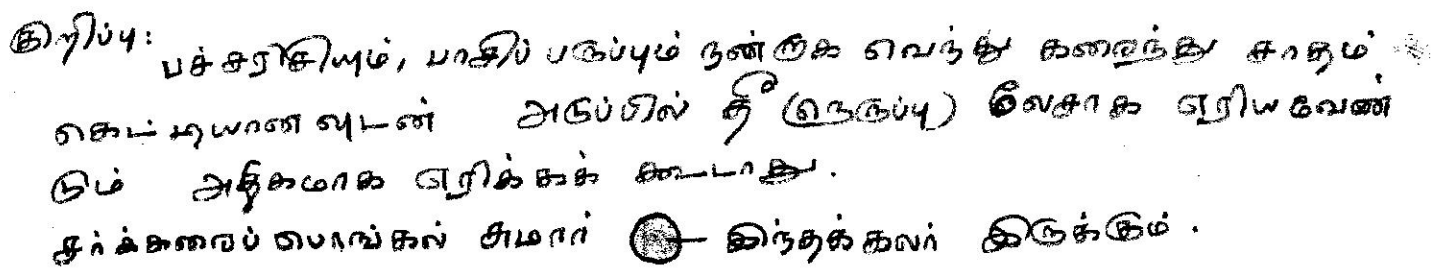 குறிப்பு:
பச்சரிசியும், பாசிப் பருப்பும் நன்றாக வெந்து கரைந்து சாதம்
கெட்டியானவுடன் அடுப்பில் தீ (நெருப்பு) லேசாக எரியவேண்
டும் அதிகமாக எரிக்கக் கூடாது.
சர்க்கரைப் பொங்கல் சுமார் — இந்தக்கலர் இருக்கும்.